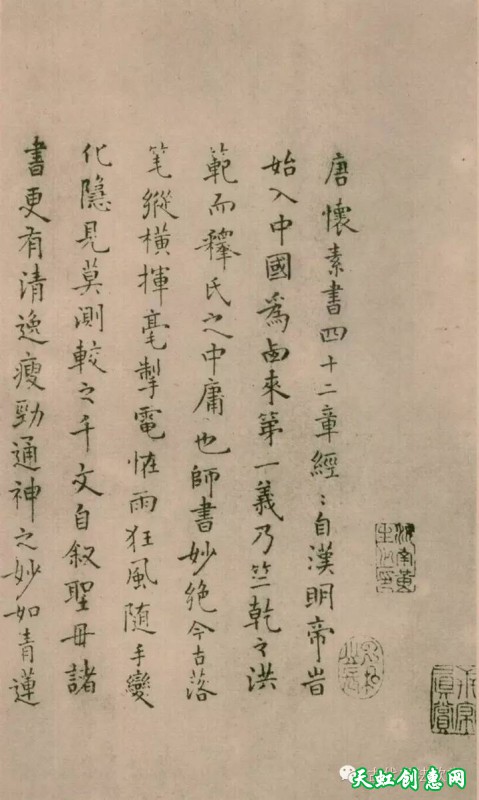 唐懷素書四十二章經：自漢明帝旹
始入中國為西來第一義乃竺乾之洪
範而釋氏之中庸也師書妙絶今古落
笔縱橫揮毫掣電怪雨狂風随手變
化隱見莫測較之千文自叙聖母諸
書更有清逸瘦勁通神之妙如青蓮
真賞
天虹创惠网